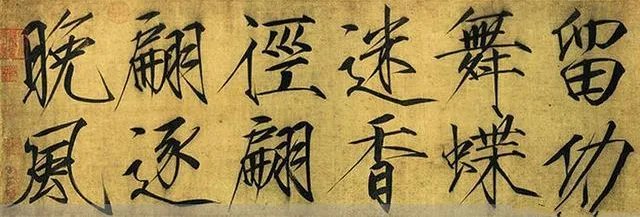 留功
舞蝶
迷香
徑翩
翩逐
晚風